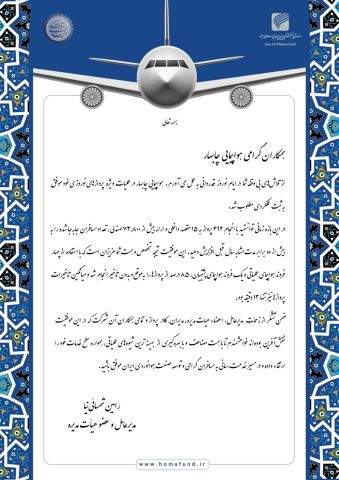 بسمه تعالی
همکاران گرامی هواپیمایی چابهار
از تلاش‌های بی وقفه شما در ایام نوروز قدردانی به عمل می آورم، هواپیمایی چابهار در عملیات ویژه پروازهای نوروزی خود موفق
به ثبت عملکردی مطلوب شد.
در این بازه زمانی توانستید با انجام ۴۹۲ پرواز به ۱۵ مقصد داخلی و ارائه بیش از ۷۳،۸۰۰ صندلی، تعداد مسافران جابه‌جا شده را به
بیش از دو برابر مدت مشابه سال قبل افزایش دهید. این موفقیت نتیجه تخصص و همت شما عزیزان است که با استفاده از چهار
فروند هواپیمای عملیاتی و یک فروند هواپیمای پشتیبان، ۸۵ درصد از پروازها را به موقع و بدون تأخیر انجام شد و میانگین تأخیرات
پروازها نیز تنها ۱۳ دقیقه بود.
ضمن تشکر از زحمات مدیرعامل، اعضاء هیات مدیره، مدیران، کادر پرواز و تمامی همکاران آن شرکت که در این موفقیت
نقش آفرین بوده‌اند خواهشمندم تا با همت مضاعف و با بهره گیری از بهینه ترین شیوه‌های عملیاتی، همواره سطح خدمات خود را
ارتقاء داده و در مسیر خدمت رسانی به مسافران گرامی و توسعه صنعت هوانوردی ایران موفق باشید.
رامین شمسائی نیا
مدیرعامل و عضو هیات مدیره
www.homafund.ir